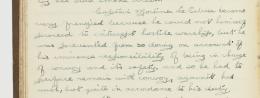 Captain Fortunes de Calves became
very frenzied because he could not himself
proceed to intercept hostile warship, but he
was prevented from so doing on account of
his immense responsibility of being in charge
of convoy and its safety, and so he had to
perforce remain with convoy, against his
wish, but quite in accordance to his duty